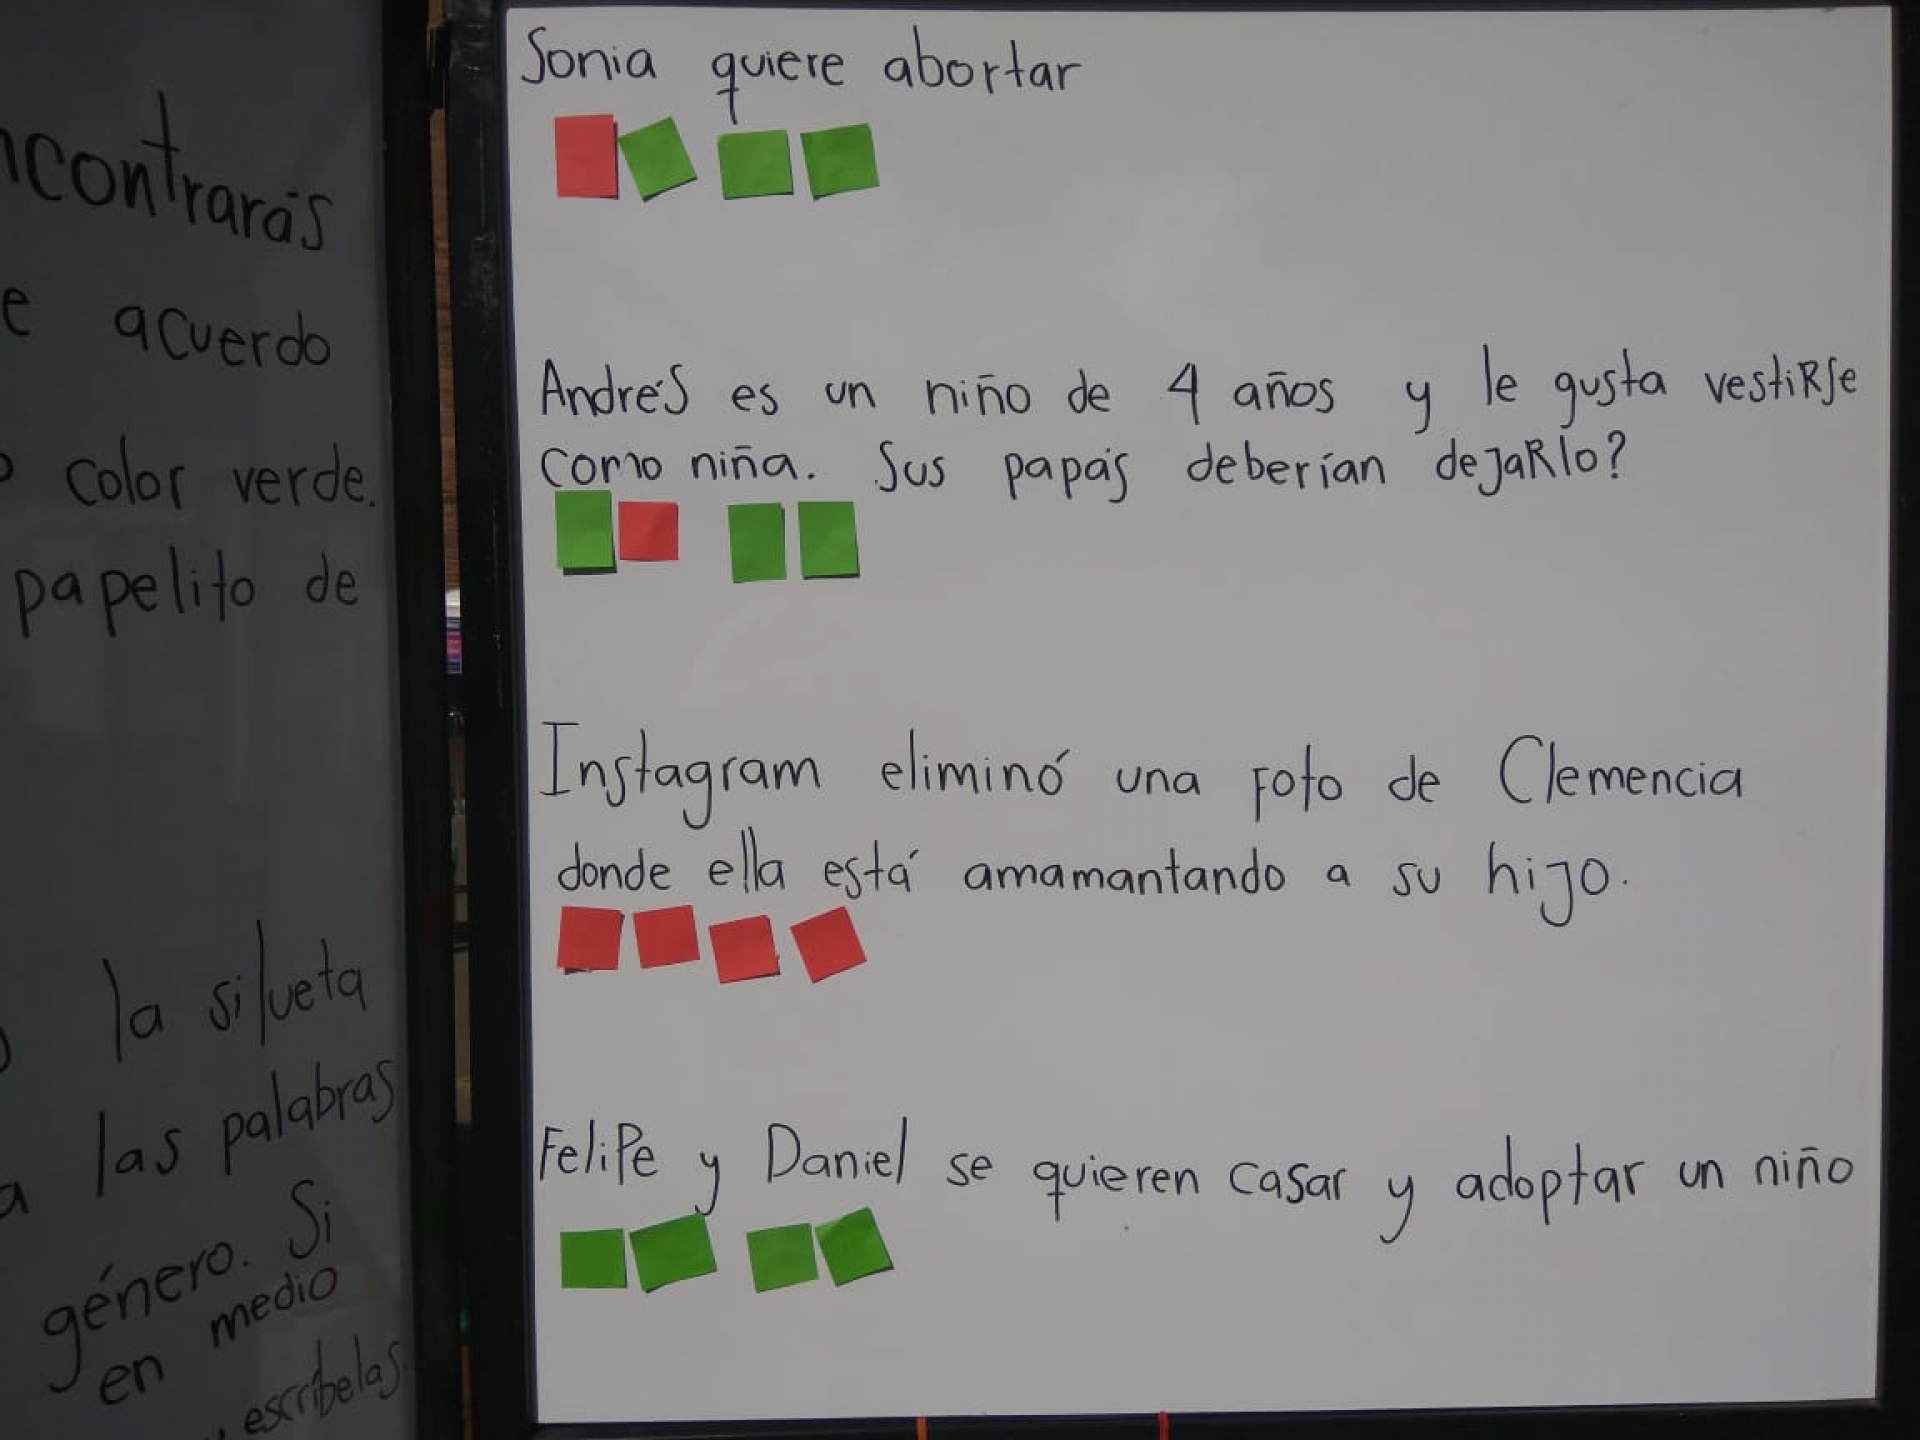 contrarás
e acuerdo
color verde.
papelito de
la silueta
las palabras
género. Si
en medio
escríbelas.
Sonia quiere abortar
Andrés es un niño de 4 años y le gusta vestirse
como niña. Sus papás deberían dejarlo?
Instagram eliminó una foto de Clemencia
donde ella está amamantando a su hijo.
Felipe y Daniel se quieren casar y adoptar un niño